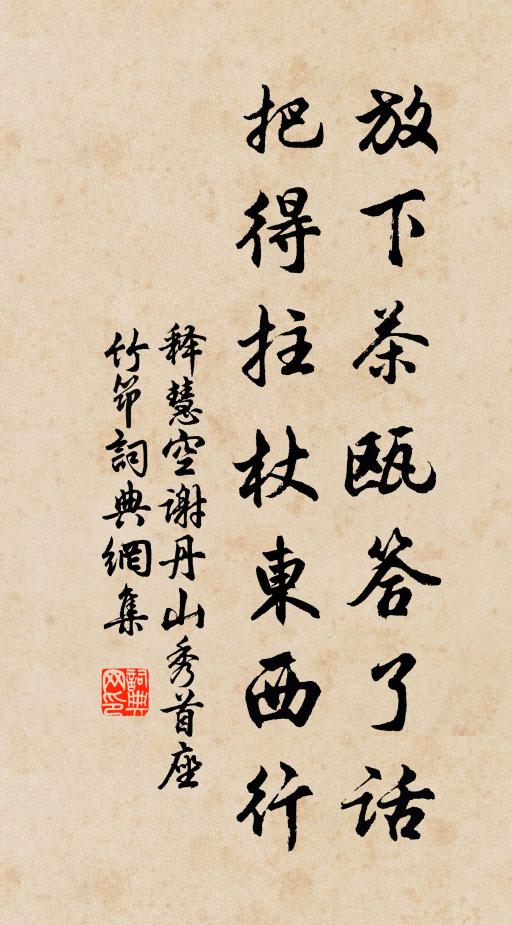 放下茶瓯答了話
把得拄杖東西行
释慧空谢丹山秀首座
竹节詞典網集
詞典网印